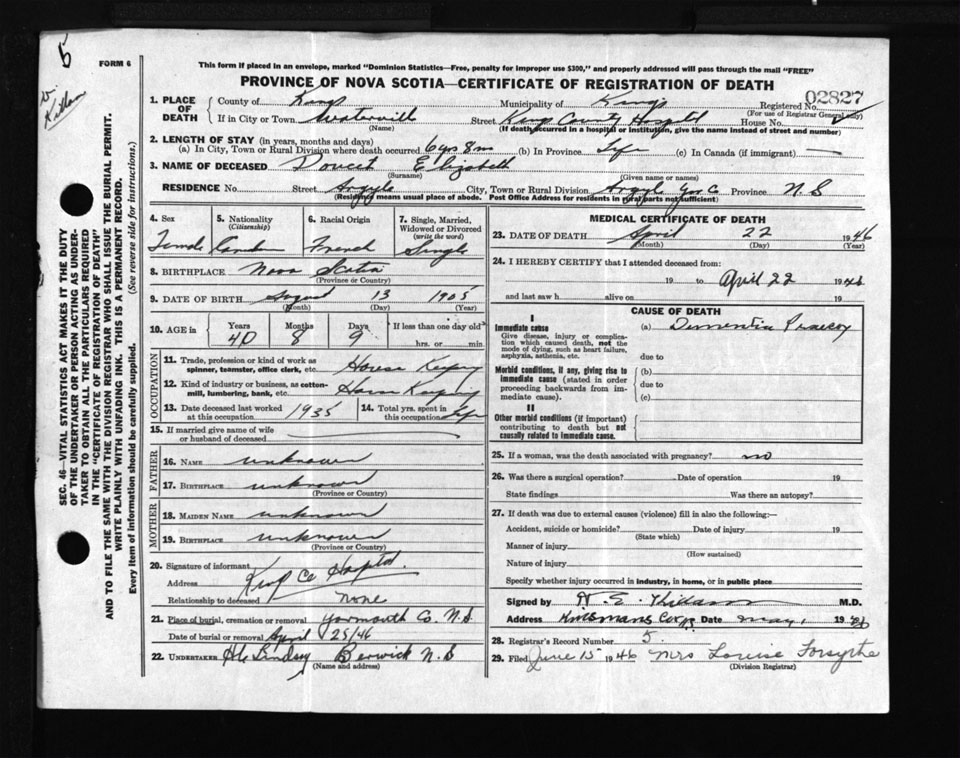 5
W.
Killam
FORM 6
This form if placed in an envelope, marked "Dominion Statistics—Free, penalty for improper use $300," and properly addressed will pass through the mail "FREE"
PROVINCE OF NOVA SCOTIA—CERTIFICATE OF REGISTRATION OF DEATH
02827
1. PLACE OF DEATH County of Kings Municipality of Kings Registered No.
(For use of Registrar General only)
If in City or Town Waterville Street Kings County Hospital House No.
(Name) (If death occurred in a hospital or institution, give the name instead of street and number)
2. LENGTH OF STAY (in years, months and days)
(a) In City, Town or Rural Division where death occurred 6 yrs 8 m (b) In Province Life (c) In Canada (if immigrant) —
3. NAME OF DECEASED Doucet Elizabeth
(Surname) (Given name or names)
RESIDENCE No. Street Argyle City, Town or Rural Division Argyle Yar Co Province N.S
(Residence means usual place of abode. Post Office Address for residents in rural parts not sufficient)
4. Sex 5. Nationality (Citizenship) 6. Racial Origin 7. Single, Married, Widowed or Divorced (write the word)
Female Canadian French Single
8. BIRTHPLACE Nova Scotia
(Province or Country)
9. DATE OF BIRTH August 13 1905
(Month) (Day) (Year)
10. AGE in Years Months Days If less than one day old
40 8 9 hrs. or min.
OCCUPATION
11. Trade, profession or kind of work as spinner, teamster, office clerk, etc. House Keeping
12. Kind of industry or business, as cotton-mill, lumbering, bank, etc. House Keeping
13. Date deceased last worked at this occupation 1935 14. Total yrs. spent in this occupation Life
15. If married give name of wife or husband of deceased
FATHER
16. NAME unknown
17. BIRTHPLACE unknown
(Province or Country)
MOTHER
18. MAIDEN NAME unknown
19. BIRTHPLACE unknown
(Province or Country)
20. Signature of informant
Address King Co Hospital
Relationship to deceased None
21. Place of burial, cremation or removal Yarmouth Co. N.S.
Date of burial or removal April 25/46
22. UNDERTAKER Lindsay Berwick N.S
(Name and address)
MEDICAL CERTIFICATE OF DEATH
23. DATE OF DEATH April 22 1946
(Month) (Day) (Year)
24. I HEREBY CERTIFY that I attended deceased from:
19 to April 22 1946
and last saw h alive on 19
CAUSE OF DEATH
I
Immediate cause (a) Dementia Praecox
Give disease, injury or complication which caused death, not the mode of dying, such as heart failure, asphyxia, asthenia, etc.
due to
Morbid conditions, if any, giving rise to immediate cause (stated in order proceeding backwards from immediate cause).
(b)
due to
(c)
II
Other morbid conditions (if important) contributing to death but not causally related to immediate cause.
25. If a woman, was the death associated with pregnancy? no
26. Was there a surgical operation? Date of operation 19
State findings Was there an autopsy?
27. If death was due to external causes (violence) fill in also the following:—
Accident, suicide or homicide? Date of injury 19
(State which)
Manner of injury
(How sustained)
Nature of injury
Specify whether injury occurred in industry, in home, or in public place
Signed by M.D.
Address Date May 1 1946
28. Registrar's Record Number 5.
29. Filed June 15 1946 Mrs Louise Forsythe
(Division Registrar)
SEC. 46—VITAL STATISTICS ACT MAKES IT THE DUTY
OF THE UNDERTAKER OR PERSON ACTING AS UNDER-
TAKER TO OBTAIN ALL THE PARTICULARS REQUIRED
IN THE "CERTIFICATE OF REGISTRATION OF DEATH"
AND TO FILE THE SAME WITH THE DIVISION REGISTRAR WHO SHALL ISSUE THE BURIAL PERMIT.
WRITE PLAINLY WITH UNFADING INK. THIS IS A PERMANENT RECORD.
Every item of information should be carefully supplied. (See reverse side for instructions.)